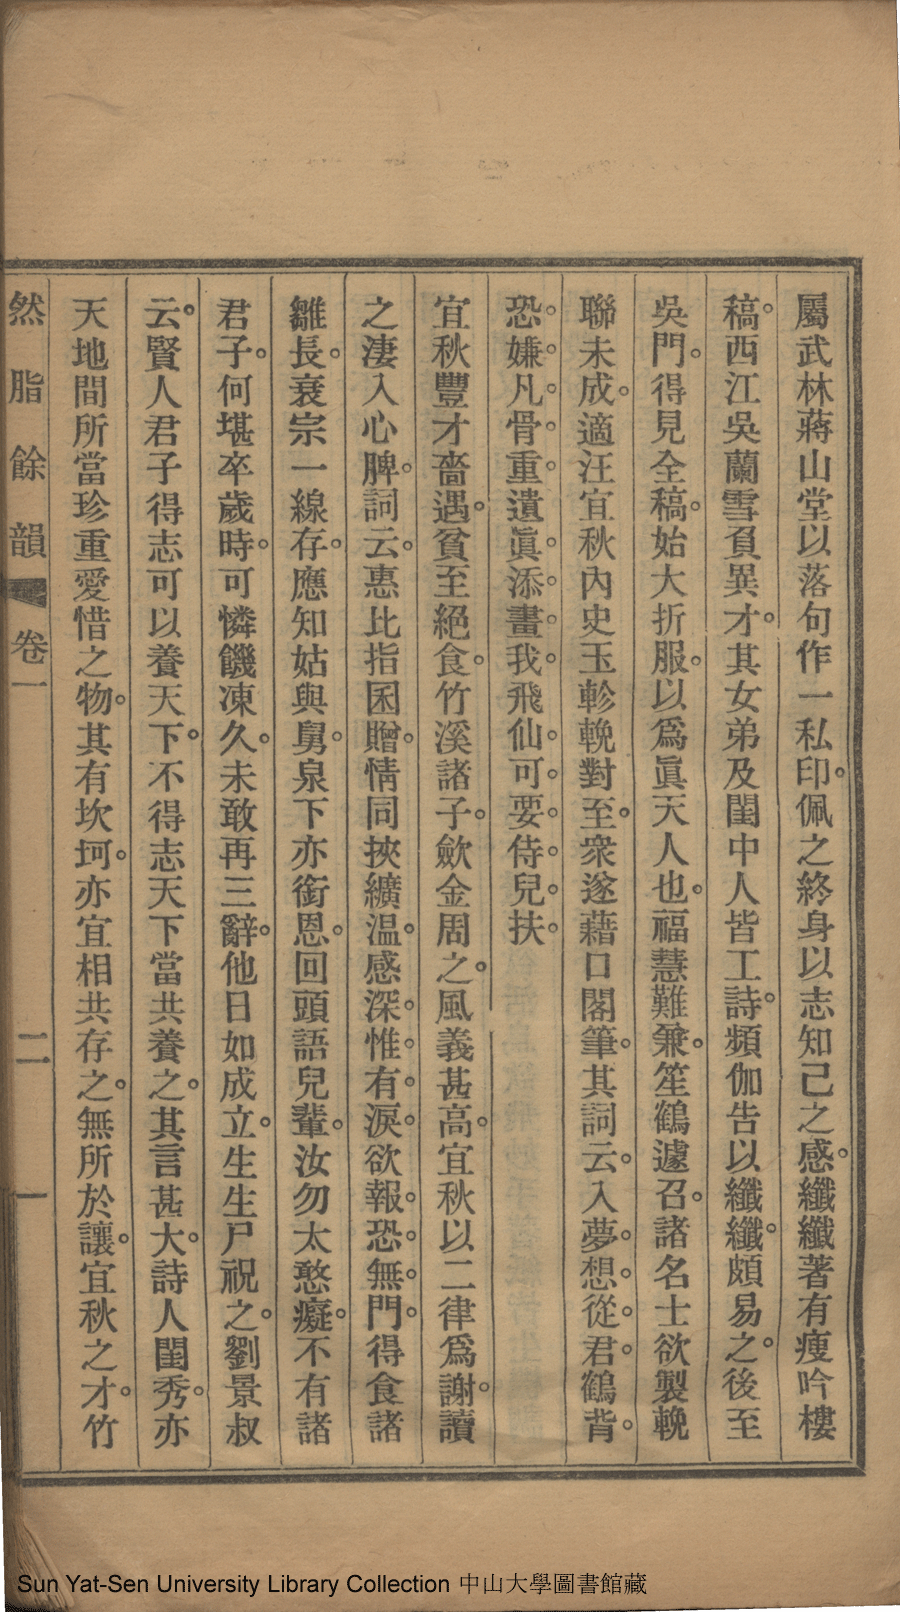 屬武林蔣山堂以落句作一私印。佩之終身以志知己之感。纖纖著有瘦吟樓
稿。西江吳蘭雪負異才。其女弟及閨中人皆工詩。頻伽告以纖纖。頗易之。後至
吳門。得見全稿。始大折服。以爲眞天人也。福慧難兼。笙鶴遽召。諸名士欲製輓
聯未成。適汪宜秋內史玉軫輓對至。衆遂藉口閣筆。其詞云。入夢。想。從。君。鶴背。
恐。嫌。凡。骨。重。遺眞。添。畫。我。飛仙。可。要。侍。兒。扶。
宜秋豐才嗇遇。貧至絕食。竹溪諸子。歛金周之。風義甚高。宜秋以二律爲謝。讀
之淒入心脾。詞云。惠比指囷贈。情同挾纊温。感深。惟。有。淚。欲報。恐。無。門。得食諸
雛長。衰宗一線存。應知姑與舅。泉下亦銜恩。回頭語兒輩。汝勿太憨癡。不有諸
君子。何堪卒歲時。可憐饑凍久。未敢再三辭。他日如成立。生生尸祝之。劉景叔
云。賢人君子得志可以養天下。不得志天下當共養之。其言甚大。詩人閨秀。亦
天地間所當珍重愛惜之物。其有坎坷。亦宜相共存之。無所於讓。宜秋之才。竹
然脂餘韻 卷一 二 一
Sun Yat-Sen University Library Collection 中山大學圖書館藏